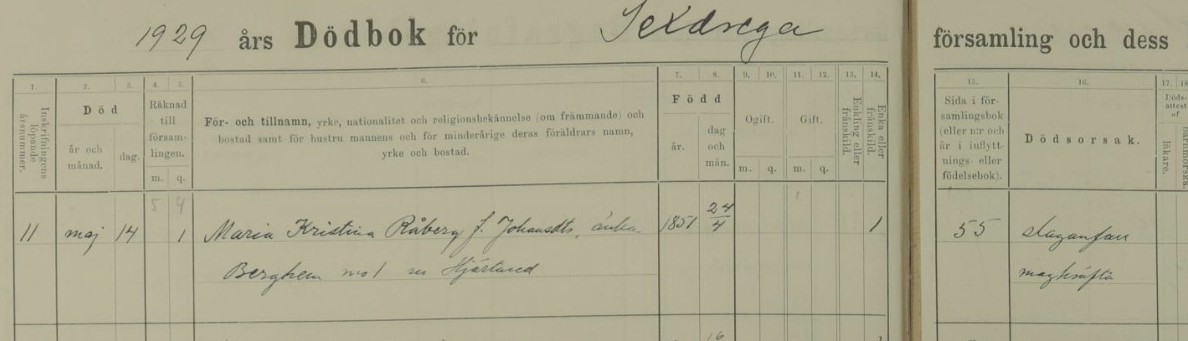 1929 års Dödbok för Sexdrega församling och dess
1. 2. 3. 4. 5. 6. 7. 8. 9. 10. 11. 12. 13. 14. 15. 16. 17. 18
Inskrifningens löpande årsnummer.
Död
år och månad.
dag.
Räknad till församlingen.
m. q.
För- och tillnamn, yrke, nationalitet och religionsbekännelse (om främmande) och
bostad samt för hustru mannens och för minderårige deras föräldrars namn,
yrke och bostad.
Född
år.
dag och mån.
Ogift.
m. q.
Gift.
m. q.
Enkling eller frånskild.
Enka eller frånskild.
Sida i för-
samlingsbok
(eller n:r och
år i inflytt-
nings- eller
födelsebok).
Dödsorsak.
Döds-
attest
af
läkare.
barnmorska.
5 4
11 maj 14 1 Maria Kristina Råberg f. Johansdtr, änka 1851 24/4 1 55 slaganfall
Berghem no 1 magkräfta